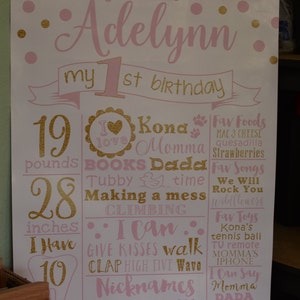 Adelynn
my 1st birthday
19
pounds
28
inches
I Have
10
I
love
Kona
Momma
BOOKS Dada
Tubby time
Making a mess
CLIMBING
I Can
GIVE KISSES walk
CLAP HIGH FIVE Wave
Nicknames
Fav Foods
MAC & CHEESE
quesadilla
Strawberries
Fav Songs
We Will
Rock You
wildflowers
Fav Toys
Kona's
tennis ball
TV remote
MOMMA'S
PHONE
I Can Say
Momma